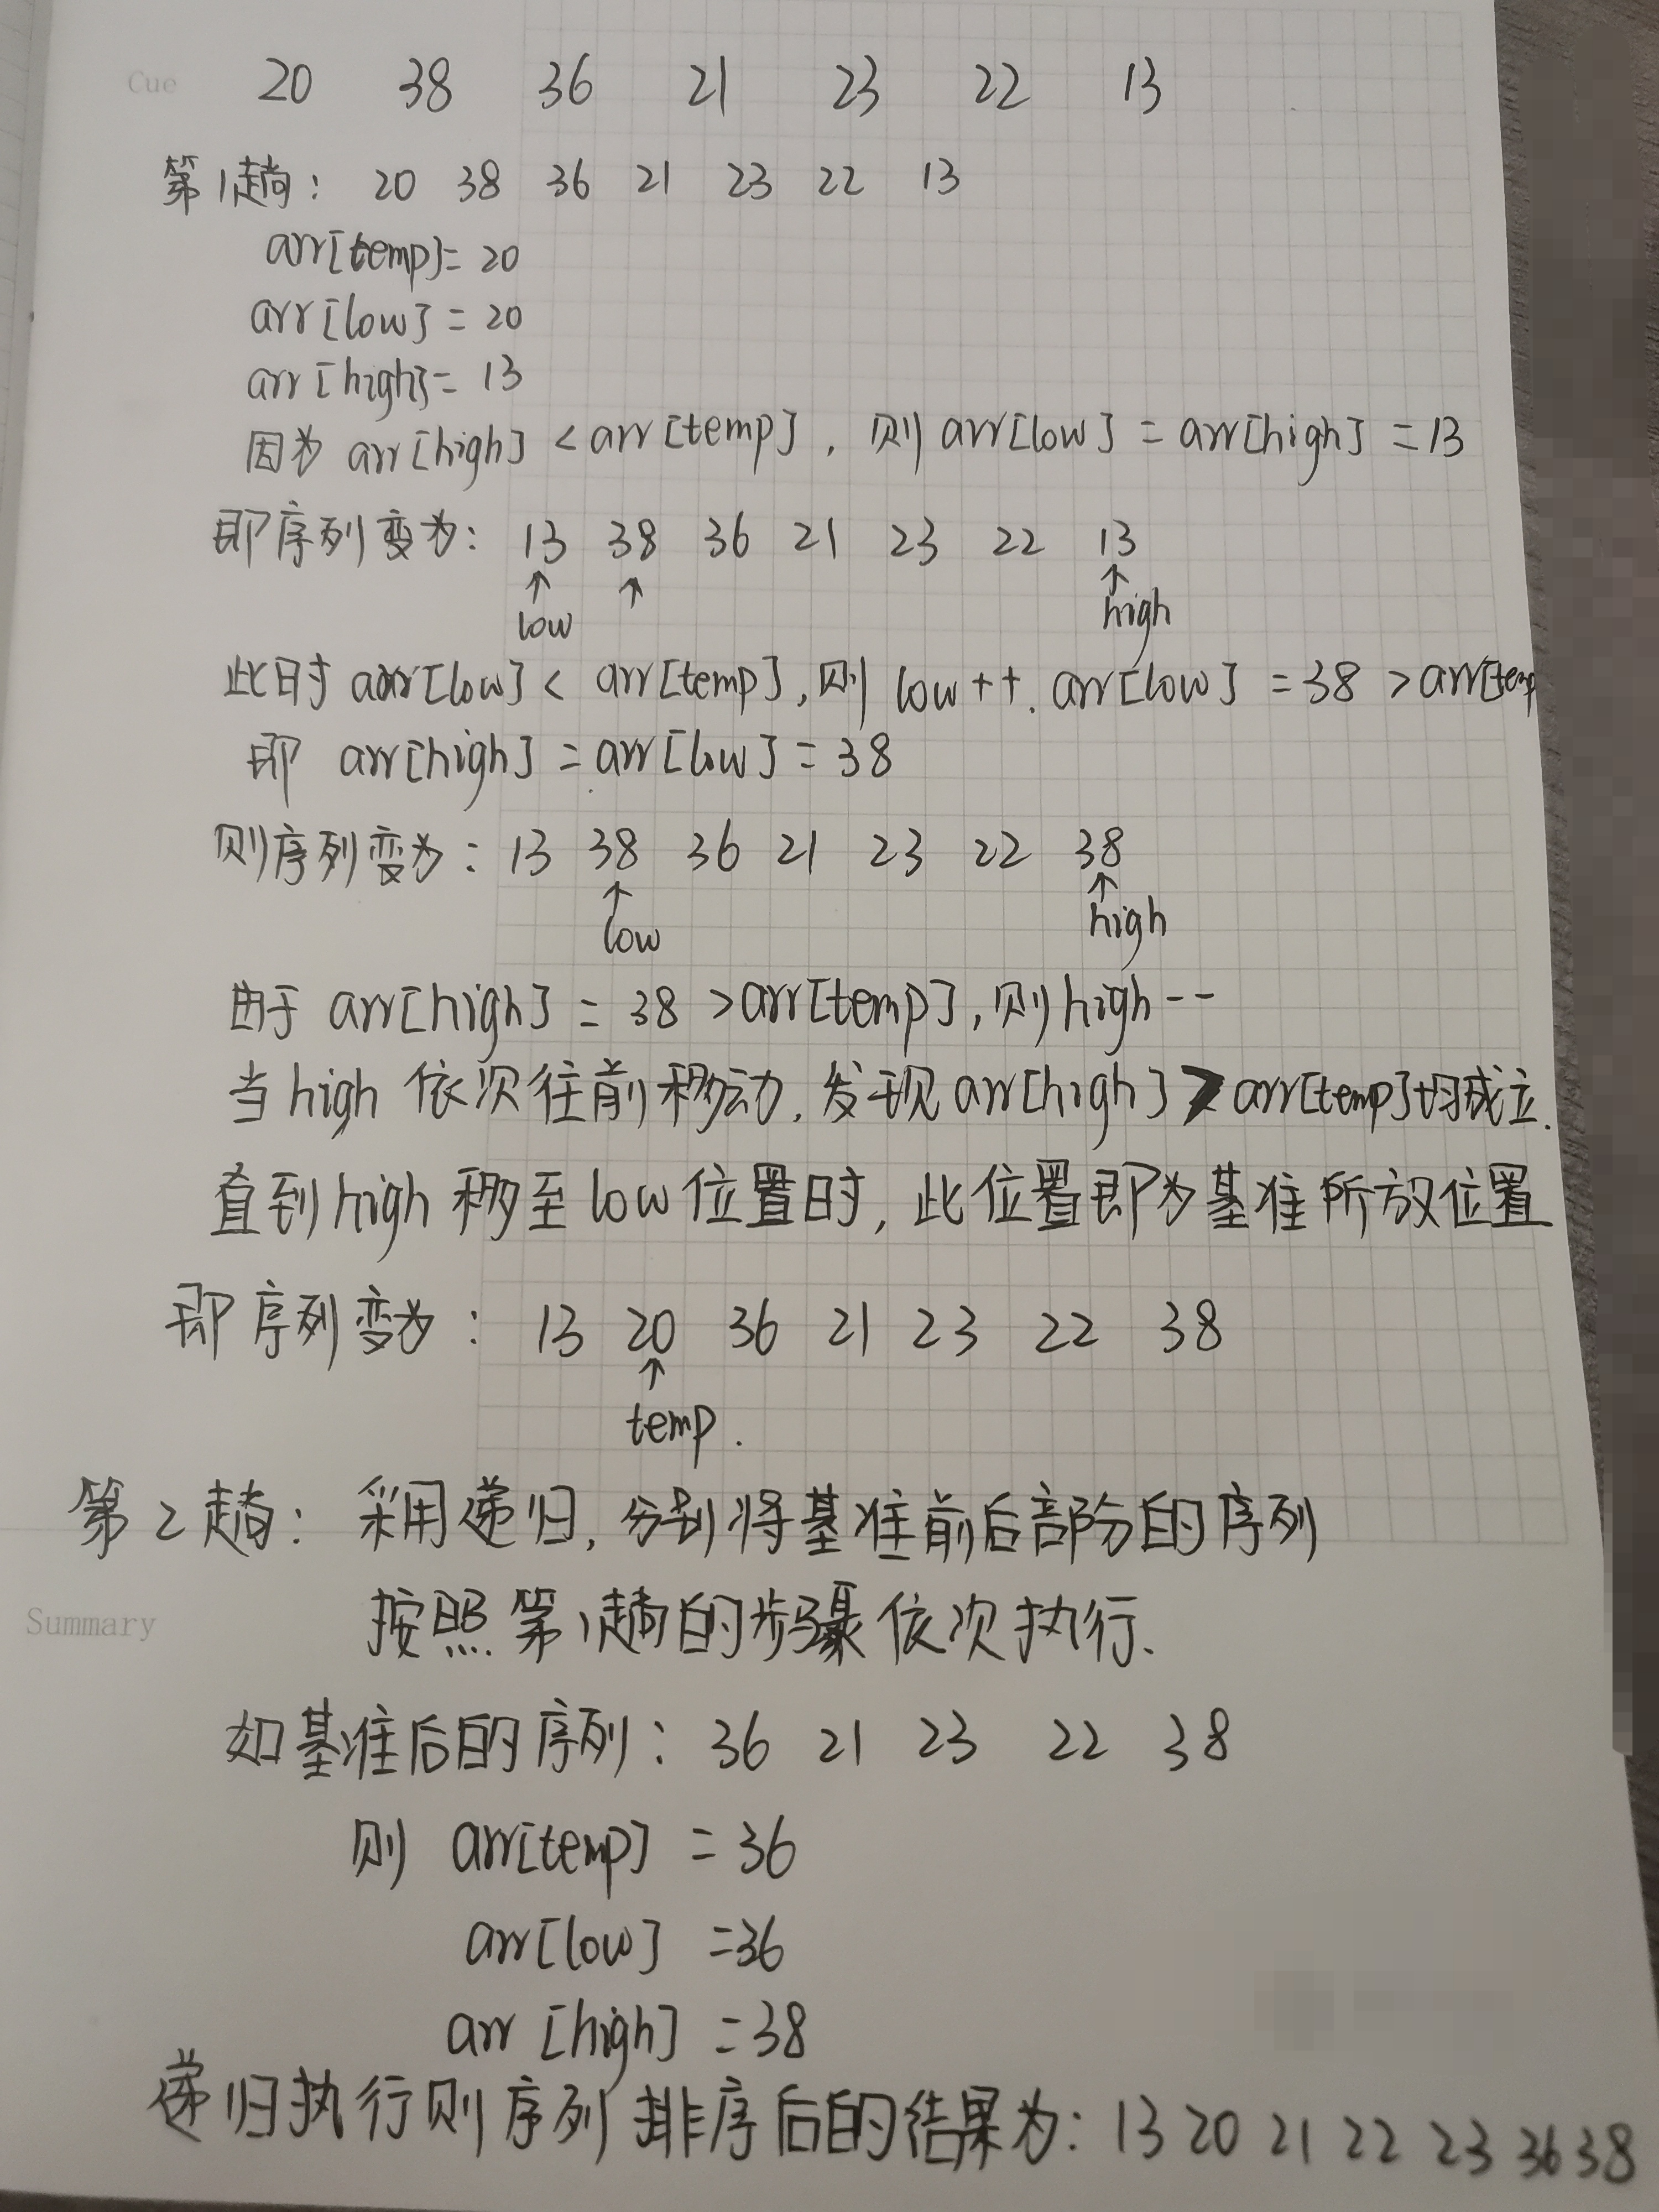 Cue 20 38 36 21 23 22 13
第1趟: 20 38 36 21 23 22 13
arr[temp]=20
arr[low]=20
arr[high]=13
因为 arr[high]<arr[temp],则 arr[low]=arr[high]=13
即序列变为: 13 38 36 21 23 22 13
↑ ↑ ↑
low high
此时 arr[low]<arr[temp],则 low++.arr[low]=38>arr[temp
即 arr[high]=arr[low]=38
则序列变为: 13 38 36 21 23 22 38
↑ ↑
low high
由于 arr[high]=38>arr[temp],则high--
当high依次往前移动,发现arr[high]>arr[temp]均成立.
直到high移至low位置时,此位置即为基准所放位置
即序列变为: 13 20 36 21 23 22 38
↑
temp.
第2趟: 采用递归,分别将基准前后部分的序列
按照第1趟的步骤依次执行.
Summary
如基准后的序列: 36 21 23 22 38
则 arr[temp]=36
arr[low]=36
arr[high]=38
递归执行则序列排序后的结果为: 13 20 21 22 23 36 38